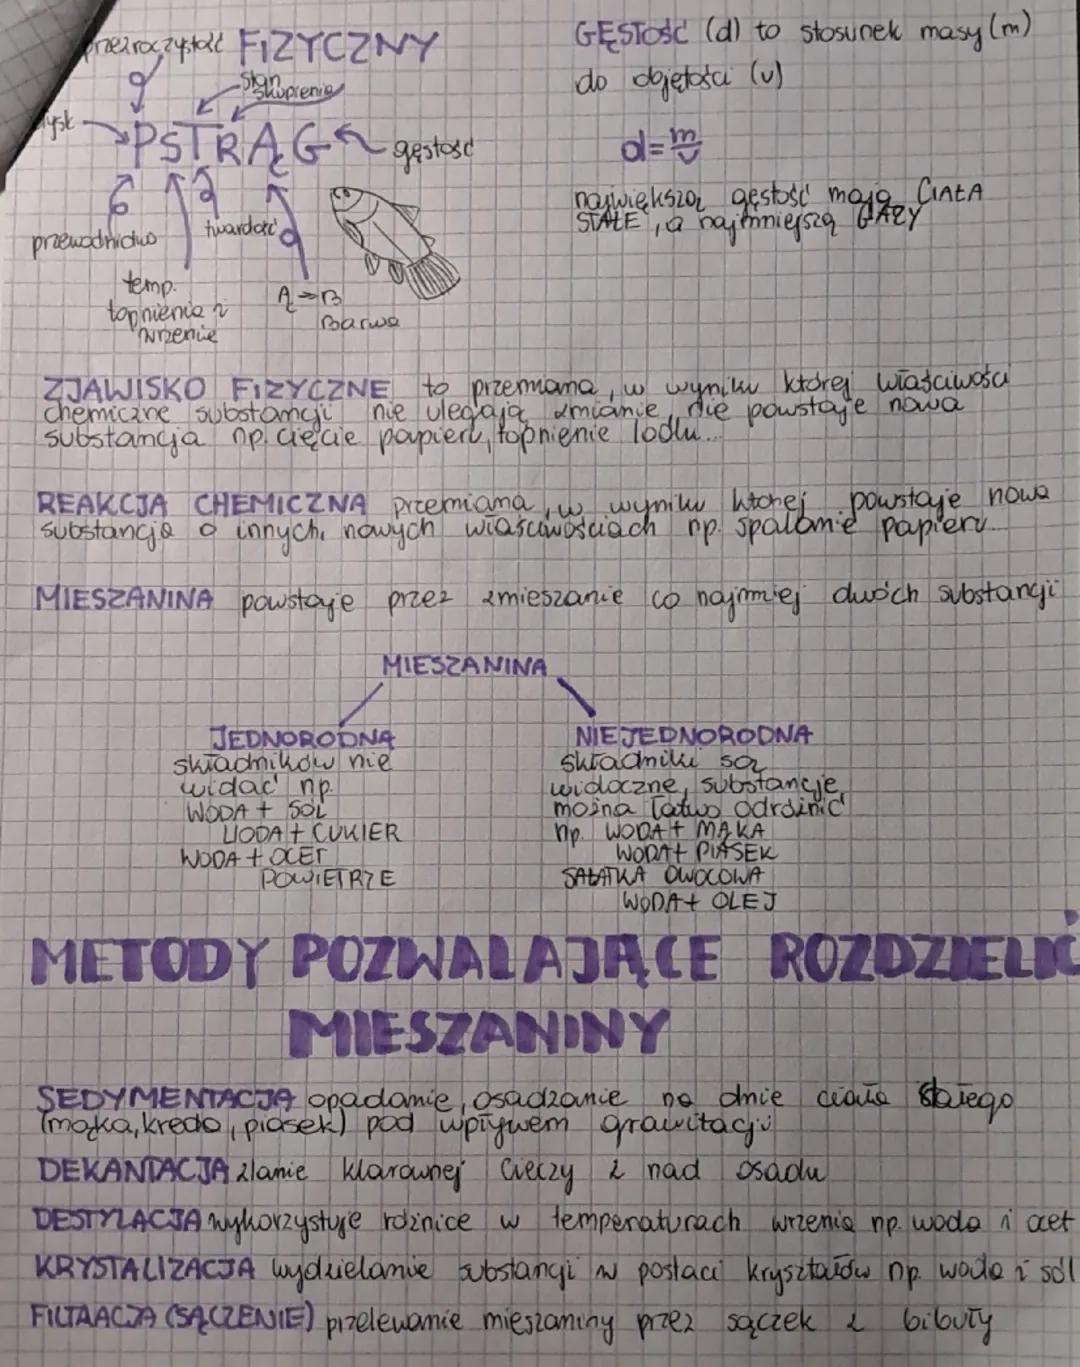 przezroczystość FIZYCZNY
stan
skupienia
połysk
PSTRĄG
gęstość
przewodnictwo
twardość
temp.
topnienia i
wrzenie
Ą → B
Barwa
GĘSTOŚĆ (d) to stosunek masy (m)
do objętości (v)
d = m/v
największą gęstość mają CIAŁA
STAŁE, a najmniejszą GAZY
ZJAWISKO FIZYCZNE to przemiana, w wyniku której właściwości
chemiczne substancji nie ulegają zmianie, nie powstaje nowa
substancja np. cięcie papieru, topnienie lodu...
REAKCJA CHEMICZNA przemiana, w wyniku której powstaje nowa
substancja o innych, nowych właściwościach np. spalanie papieru...
MIESZANINA powstaje przez zmieszanie co najmniej dwóch substancji
MIESZANINA
JEDNORODNA
składników nie
widać np.
WODA + SÓL
WODA + CUKIER
WODA + OCET
POWIETRZE
NIEJEDNORODNA
składniki są
widoczne, substancje
można łatwo odróżnić
np. WODA + MĄKA
WODA + PIASEK
SAŁATKA OWOCOWA
WODA + OLEJ
METODY POZWALAJĄCE ROZDZIELIĆ
MIESZANINY
SEDYMENTACJA opadanie, osadzanie na dnie ciała stałego
(mąka, kreda, piasek) pod wpływem grawitacji
DEKANTACJA zlanie klarownej cieczy z nad osadu
DESTYLACJA wykorzystuje różnice w temperaturach wrzenia np. woda i ocet
KRYSTALIZACJA wydzielanie substancji w postaci kryształów np. woda i sól
FILTAACJA (SĄCZENIE) przelewanie mieszaniny przez sączek z bibuły